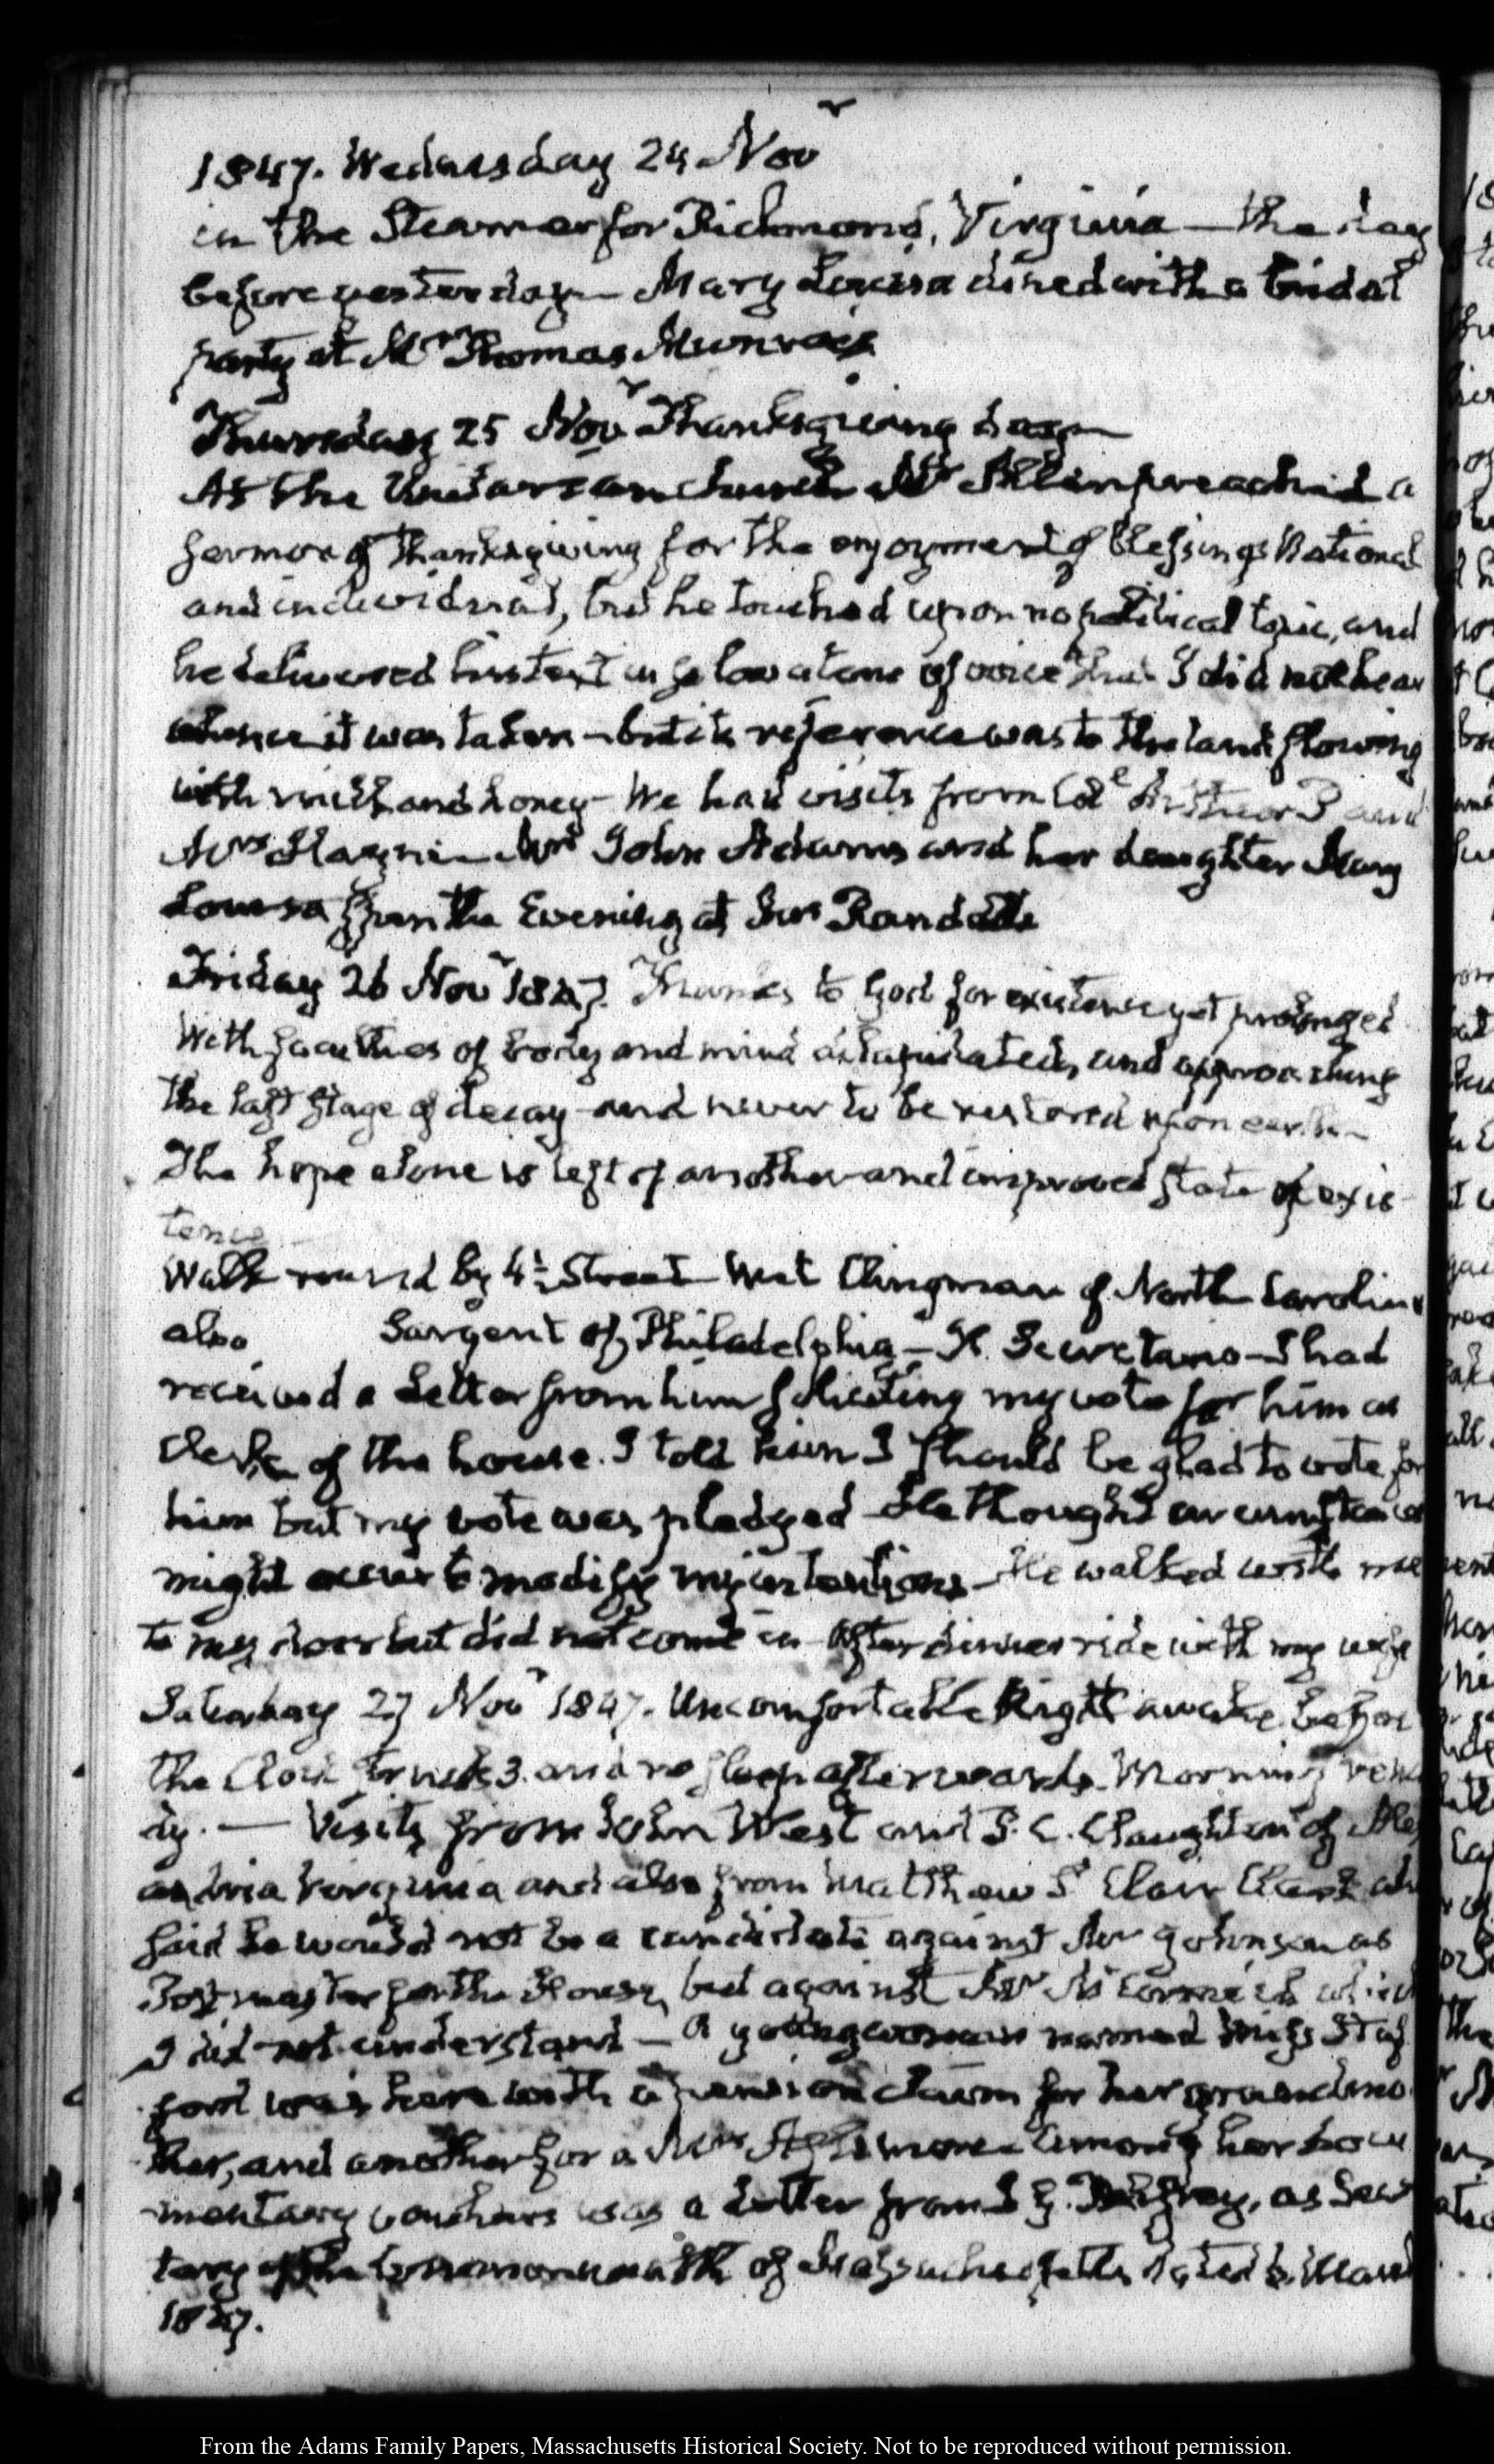 1847. Wednesday 24 Novr
in the Steamer for Richmond, Virginia — the day
before yesterday — Mary Louisa dined with a bridal
party at Mr Thomas Munroe's
Thursday 25 Novr Thanksgiving day
At the Unitarian church Mr Allen preached a
sermon of thanksgiving for the enjoyment of blessings National
and individual, but he touched upon no political topic, and
he delivered his text in so low a tone of voice that I did not hear
whence it was taken — but its reference was to the land flowing
with milk and honey — We had visits from Col
Mrs John Adams and her daughter Mary
Louisa spent the Evening at Mrs Randall's
Friday 26 Novr 1847. Thanks to God for existence yet prolonged
With faculties of body and mind dilapidated, and approaching
the last stage of decay and never to be restored upon earth —
The hope alone is left of another and improved state of exis-
tence
Walk round by 4½ Street Met Clingman of North Carolina
also Sargent of Philadelphia — I had
received a Letter from him soliciting my vote for him as
Clerk of the house. I told him I should be glad to vote for
him but my vote was pledged — He thought circumstances
might occur to modify my intentions — He walked with me
to my door but did not come in — After dinner ride with my wife
Saturday 27 Novr 1847. Uncomfortable Night awake before
the Clock struck 3. and no sleep afterwards. Morning
— Visits from John West and
andria Virginia and also from Matthew St Clair Clarke who
said he would not be a candidate against Mr Johnson as
Postmaster for the House, but against Mr McCormick which
I did not understand — A young woman named Miss Staf
ford was here with a pension claim for her grandmo
ther, and another for a Mrs Among her docu
mentary vouchers was a Letter from J. G. Palfrey, as Secre
tary of the Commonwealth of Massachusetts dated
1847.
From the Adams Family Papers, Massachusetts Historical Society. Not to be reproduced without permission.